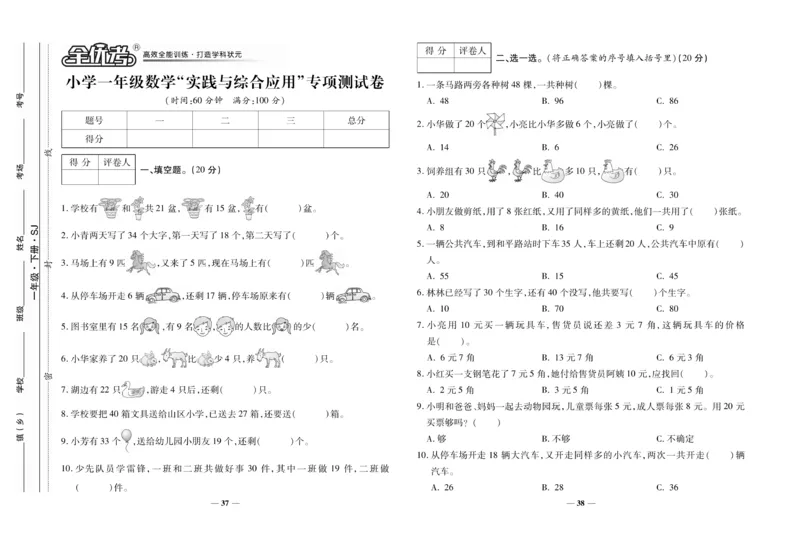 镇(乡) 学校 班级 姓名 考场 考号
一年级·下册·SJ
密 封 线
全优考® 高效全能训练·打造学科状元
小学一年级数学“实践与综合应用”专项测试卷
(时间:60分钟 满分:100分)
题号 一 二 三 总分
得分
得分 评卷人
一、填空题。(20分)
1.学校有 和 共21盆, 有15盆, 有( )盆。
2.小青两天写了34个大字,第一天写了18个,第二天写了( )个。
3.马场上有9匹 ,又来了5匹,现在马场上有( )匹 。
4.从停车场开走6辆 ,还剩17辆,停车场原来有( )辆 。
5.图书室里有15名 ,有9名 , 的人数比 的少( )名。
6.小华家养了20只 , 比 少4只,养 ( )只。
7.湖边有22只 ,游走4只后,还剩( )只。
8.学校要把40箱文具送给山区小学,已送去27箱,还要送( )箱。
9.小芳有33个 ,送给幼儿园小朋友19个,还剩( )个。
10.少先队员学雷锋,一班和二班共做好事30件,其中一班做19件,二班做
( )件。
— 37 —
得分 评卷人
二、选一选。(将正确答案的序号填入括号里)(20分)
1.一条马路两旁各种树48棵,一共种树( )棵。
A. 48 B. 96 C. 86
2.小华做了20个 ,小亮比小华多做6个,小亮做了( )个。
A. 14 B. 6 C. 26
3.饲养组有30只 , 比 多10只, 有( )只。
A. 20 B. 40 C. 30
4.小朋友做剪纸,用了8张红纸,又用了同样多的黄纸,他们一共用了( )张纸。
A. 8 B. 16 C. 9
5.一辆公共汽车,到和平路站时下车35人,车上还剩20人,公共汽车中原有( )
人。
A. 55 B. 15 C. 45
6.林林已经写了30个生字,还有40个没写,他共要写( )个生字。
A. 10 B. 70 C. 80
7.小亮用10元买一辆玩具车,售货员说还差3元7角,这辆玩具车的价格
是( )。
A. 6元7角 B. 13元7角 C. 6元3角
8.小红买一支钢笔花了7元5角,她付给售货员阿姨10元,应找回( )。
A. 2元5角 B. 3元5角 C. 1元5角
9.小明和爸爸、妈妈一起去动物园玩,儿童票每张5元,成人票每张8元。用20元
买票够吗?( )
A.够 B.不够 C.不确定
10.从停车场开走18辆大汽车,又开走同样多的小汽车,两次一共开走( )辆
汽车。
A. 26 B. 28 C. 36
— 38 —